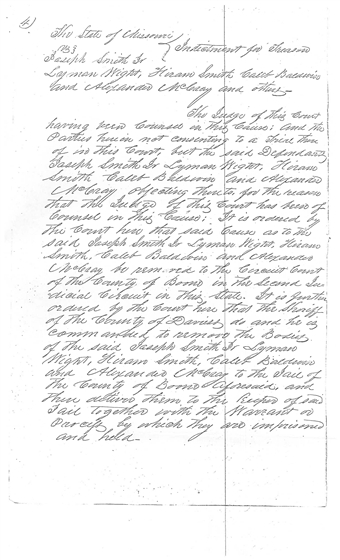 4)
The State of Missouri
vs } Indictment for Treason
Joseph Smith Jr
Lyman Wight, Hiram Smith Caleb Baldwin
and Alexander McCray and others
The Judge of this Court
having been Counsel in this Cause; and the
Parties herein not consenting to a trial there
of in this Court, but the said Defendants
Joseph Smith Jr Lyman Wight, Hiram
Smith Caleb Baldwin and Alexander
McCray objecting thereto, for the reason
that the Judge of this Court has been of
Counsel in this Cause; It is ordered by
the Court here that said Cause as to the
said Joseph Smith Jr Lyman Wight, Hiram
Smith, Caleb Baldwin and Alexander
McCray be removed to the Circuit Court
of the County of Boone in the Second Ju
dicial Circuit in this State. It is further
ordered by the Court here that the Sheriff
of the County of Daviess do and he is
commanded to remove the Bodies
of the said Joseph Smith Jr Lyman
Wight, Hiram Smith, Caleb Baldwin
and Alexander McCray to the Jail of
the County of Boone Aforesaid and
there deliver them to the keeper of said
Jail together with the Warrant or
Process by which they are imprisoned
and held